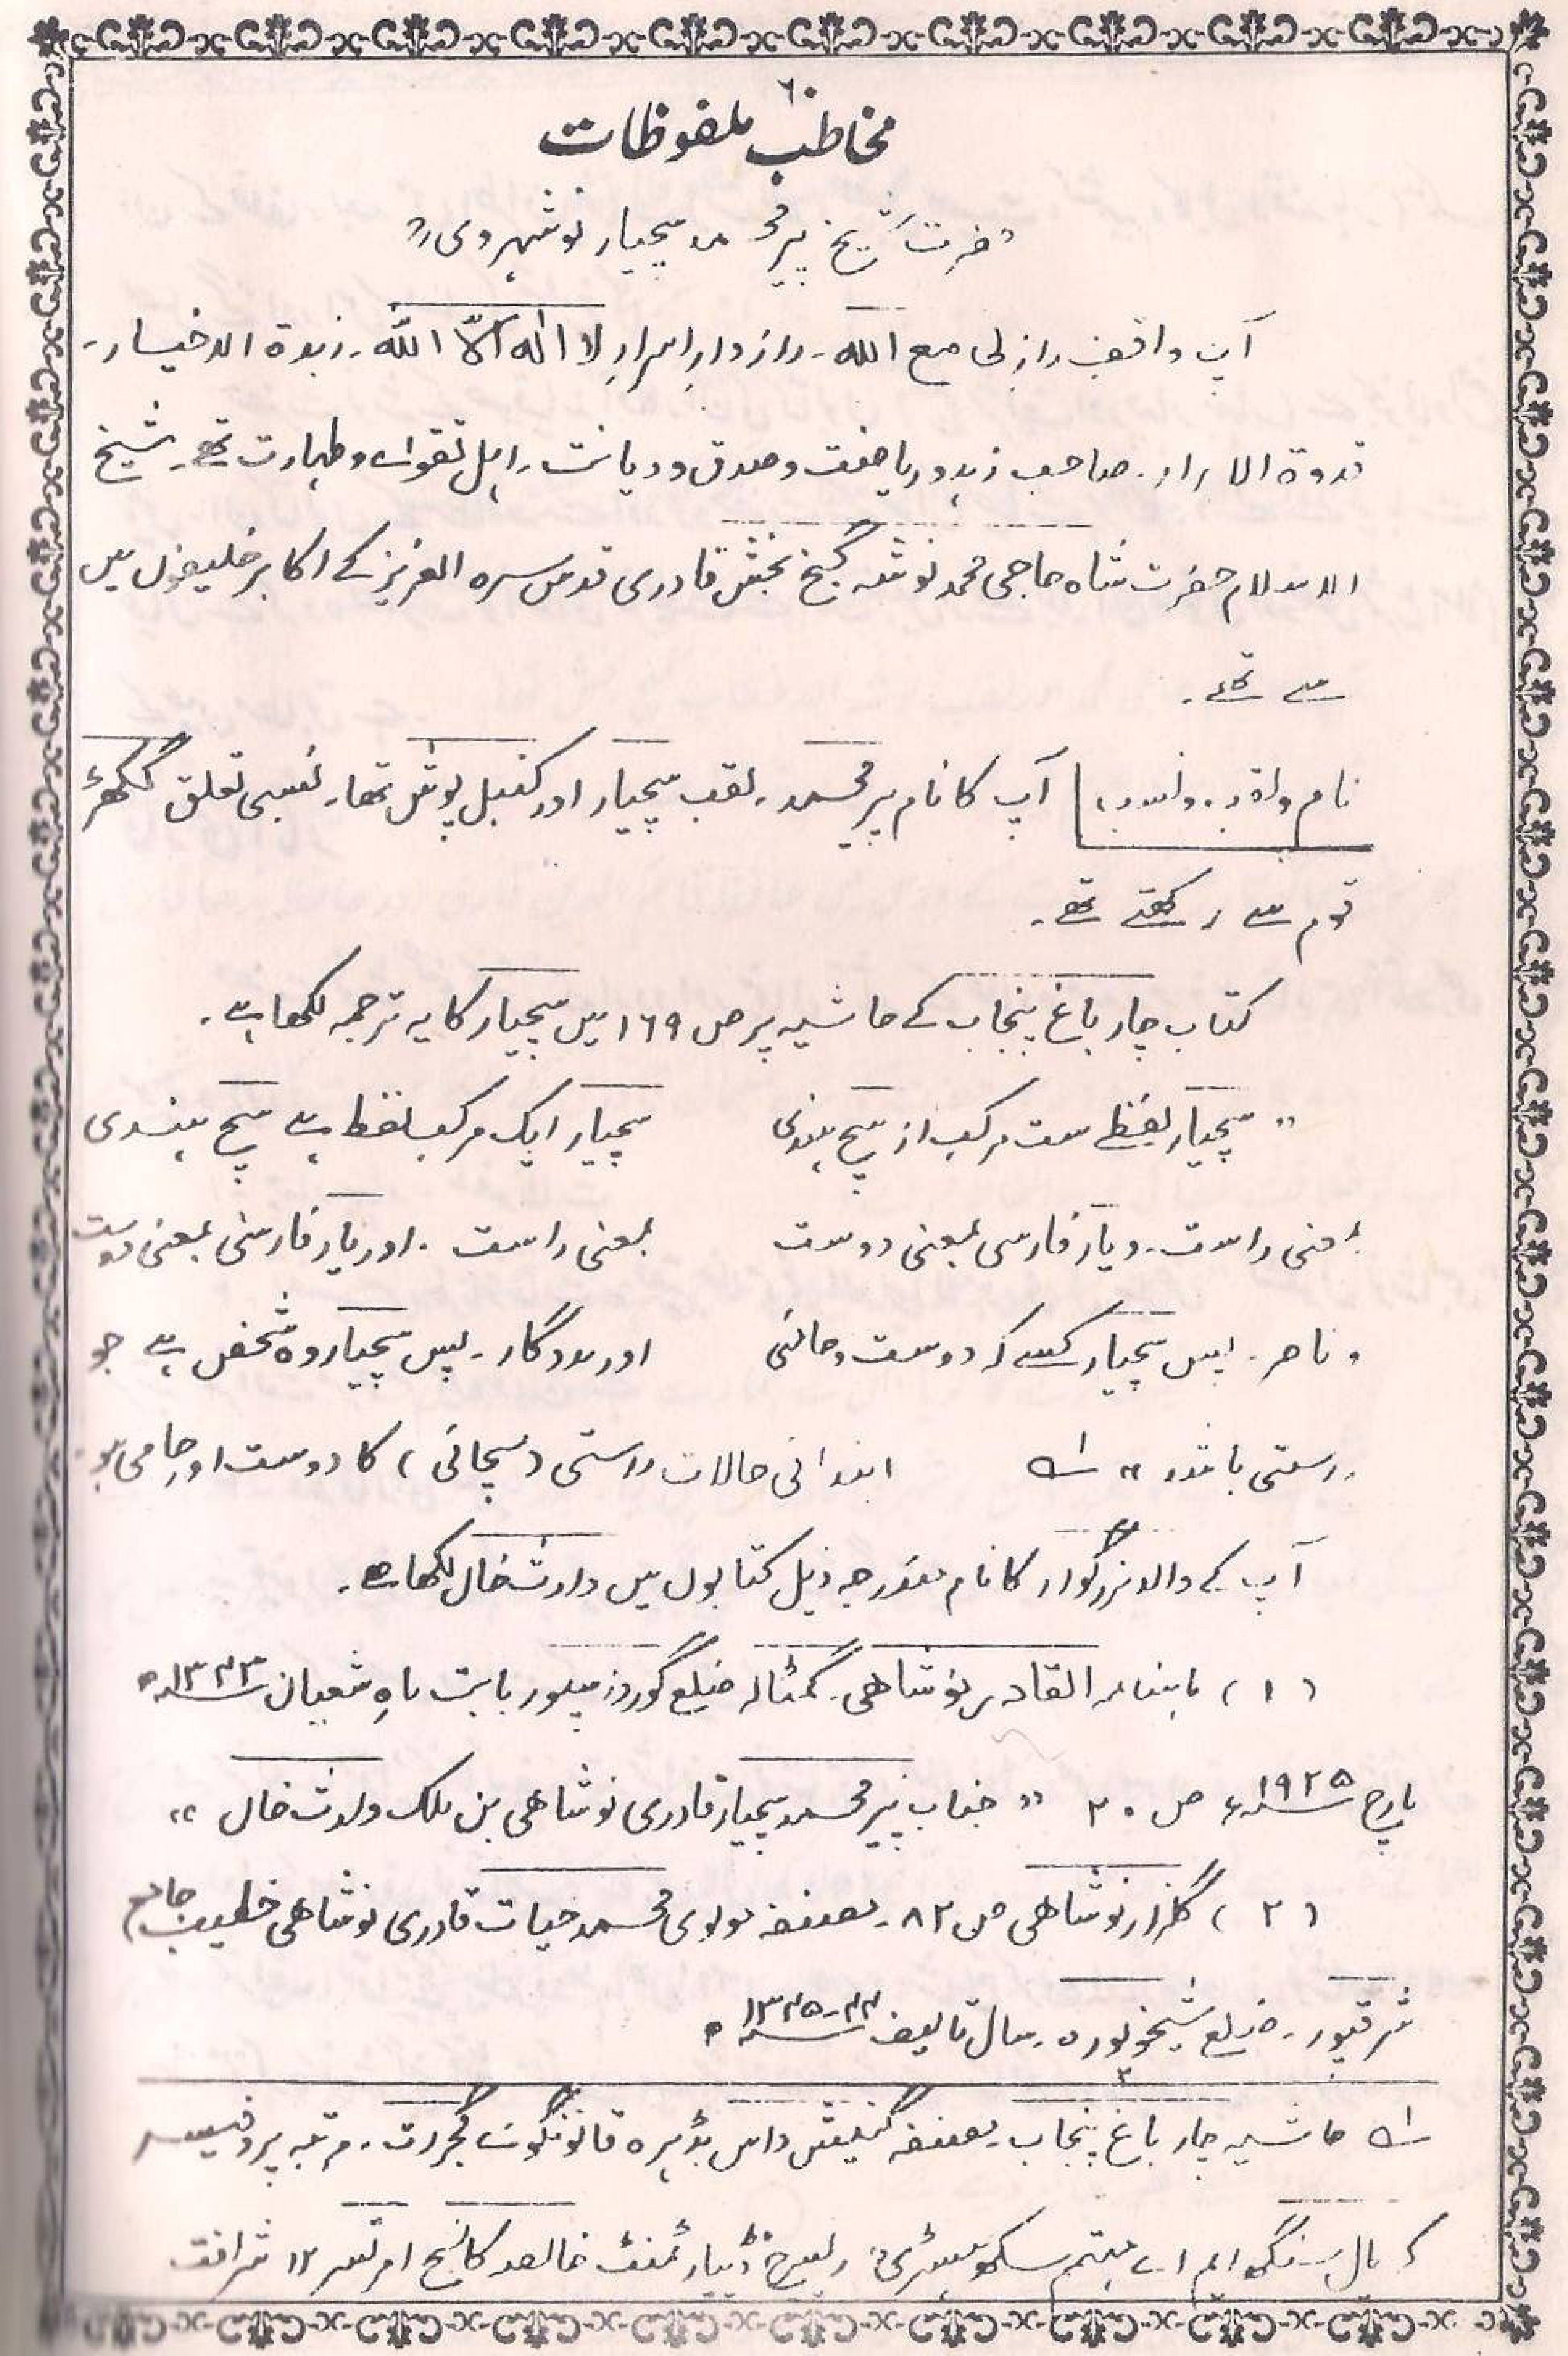 ۶۰
مخاطب ملفوظات
حضرت شیخ پیر محمد سچیار نوشہروی رح
آپ واقف رازِ لی مع اللہ۔ رازدارِ اسرارِ لا الٰہ الّا اللہ۔ زبدۃ الاخیار۔
قدوۃ الابرار۔ صاحب زہد و ریاضت و صدق و دیانت۔ اہل تقوٰے و طہارت تھے۔ شیخ
الاسلام حضرت شاہ حاجی محمد نوشہ گنج بخش قادری قدس سرہ العزیز کے اکابر خلیفوں میں
سے تھے۔
نام و لقب و نسب آپ کا نام پیر محمد۔ لقب سچیار اور کنبل پوش تھا۔ نسبی تعلق گکھڑ
قوم سے رکھتے تھے۔
کتاب چار باغ پنجاب کے حاشیہ پر ص ۱۶۹ میں سچیار کا یہ ترجمہ لکھا ہے۔
" سچیار لفظے ست مرکب از سچ ہندی
بمعنی راست۔ و یار فارسی بمعنی دوست
و ناصر۔ پس سچیار کسے کہ دوست و حامئی
راستی باشد " ؎۱
سچیار ایک مرکب لفظ ہے سچ ہندی
بمعنی راست۔ اور یار فارسی بمعنی دوست
اور مددگار۔ پس سچیار وہ شخص ہے جو
ابتدائی حالات راستی (سچائی) کا دوست اور حامی ہو۔
آپ کے والد بزرگوار کا نام مندرجہ ذیل کتابوں میں وارث خاں لکھا ہے۔
(۱) ماہنامہ القادر نوشاھی۔ گمٹالہ ضلع گورداسپور بابت ماہِ شعبان ۱۳۴۳ھ
مارچ ۱۹۲۵ء ص ۲۰ " جناب پیر محمد سچیار قادری نوشاھی بن ملک وارث خاں "
(۲) گلزار نوشاھی ص ۸۲۔ مصنفہ مولوی محمد حیات قادری نوشاھی خطیب جامع
شرقپور۔ ضلع شیخوپورہ۔ سال تالیف ۴۴-۱۳۴۵ھ
؎۱ حاشیہ چار باغ پنجاب۔ مصنفہ گنیش داس بڈہرہ قانونگوئے گجرات۔ مرتبہ پروفیسر
کرپال سنگھ ایم اے مہتمم سکھ ہسٹری ریسرچ ڈیپارٹمنٹ خالصہ کالج امرتسر ۱۲ شرافت